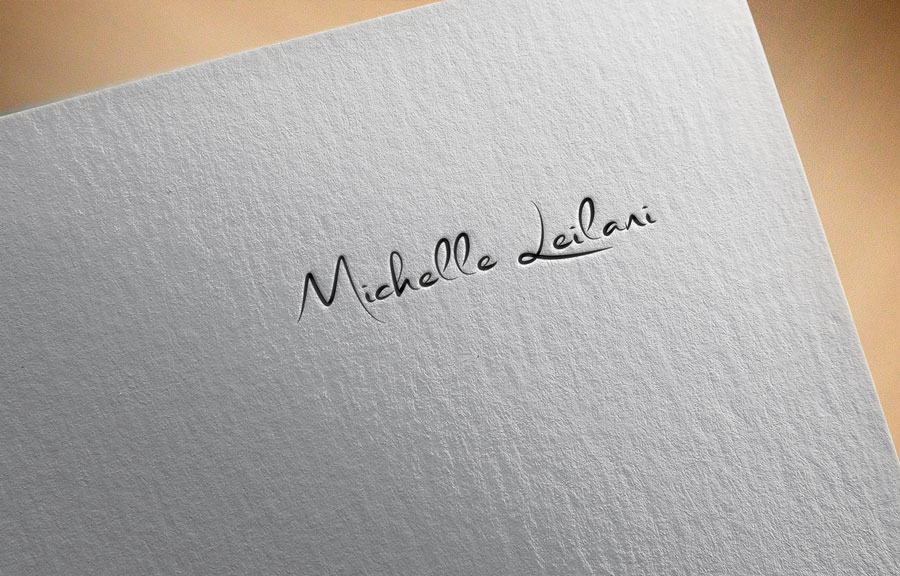 Michelle Leilani